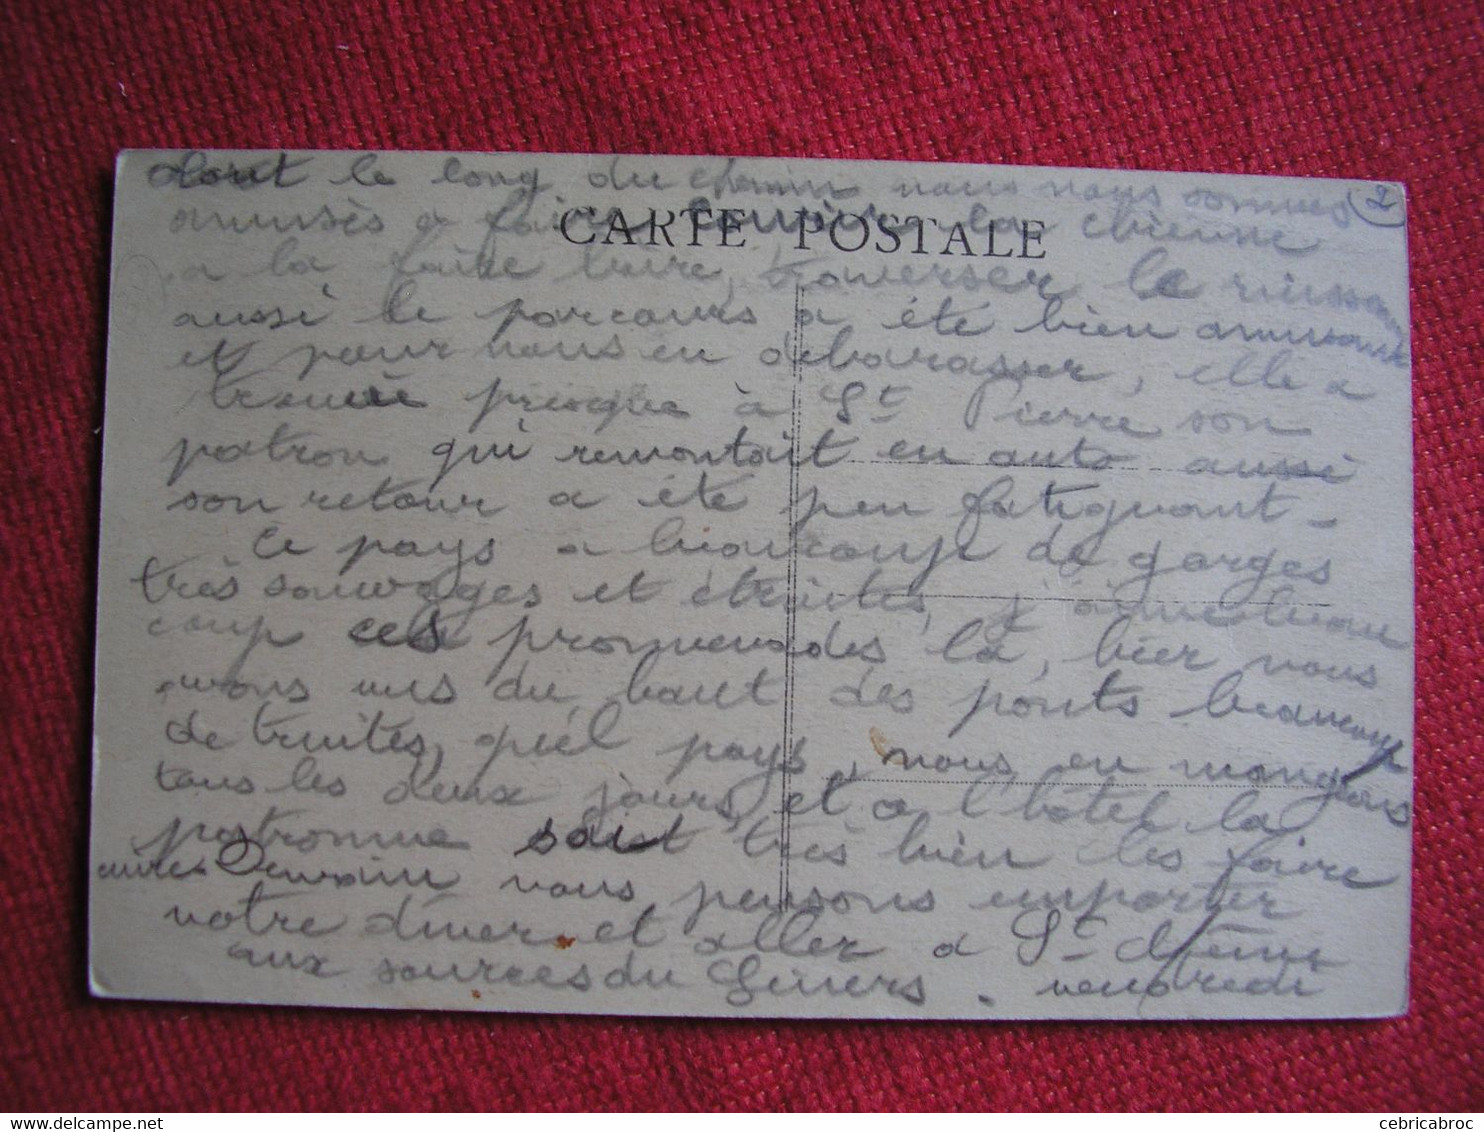 dont le long du chemin nous nous sommes 2
amusés a faire courir la chienne
CARTE POSTALE
a la faire boire, traverser le ruisseau
aussi le parcours a été bien amusant
et pour nous en debarasser, elle a
trouvé presque à St Pierre son
patron qui remontait en auto aussi
son retour a été peu fatiguant -
Ce pays a beaucoup de gorges
très sauvages et étroites, j'aime beau
coup ces promenades là, hier nous
avons vus du haut des ponts beaucoup
de truites, quel pays, nous en mangeons
tous les deux jours, et a l'hôtel la
patronne sait très bien les faire
cuires Demain nous pensons emporter
notre diner et aller a St
aux sources du Guiers. vendredi
cebricabroc